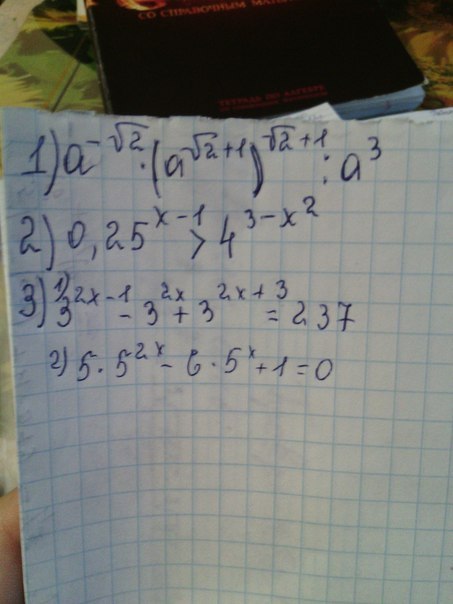 СО СПРАВОЧНЫМ
ТЕТРАДЬ ПО АЛГЕБРЕ
1) a^{-√2} · (a^{√2+1})^{√2+1} : a^3
2) 0,25^{x-1} > 4^{3-x^2}
3) 1) 3^{2x-1} - 3^{2x} + 3^{2x+3} = 237
2) 5 · 5^{2x} - 6 · 5^x + 1 = 0